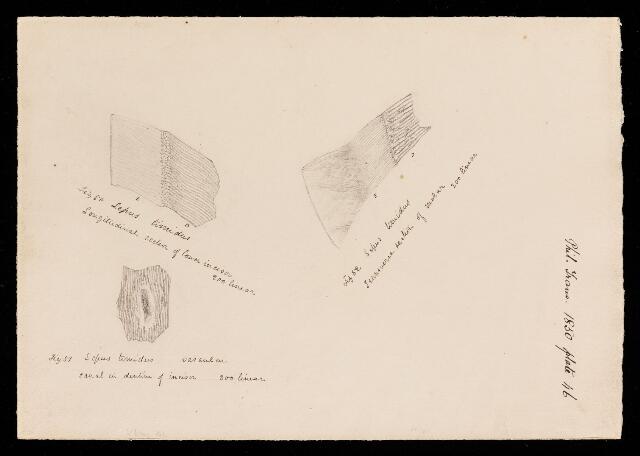 Fig 50 Lepus timidus
Longitudinal section of lower incisor
200 linear
Fig 52 Lepus timidus
Transverse section of molar 200 linear
Fig 51 Lepus timidus vascular
canal in dentine of incisor 200 linear
Phil. Trans. 1850 plate 46